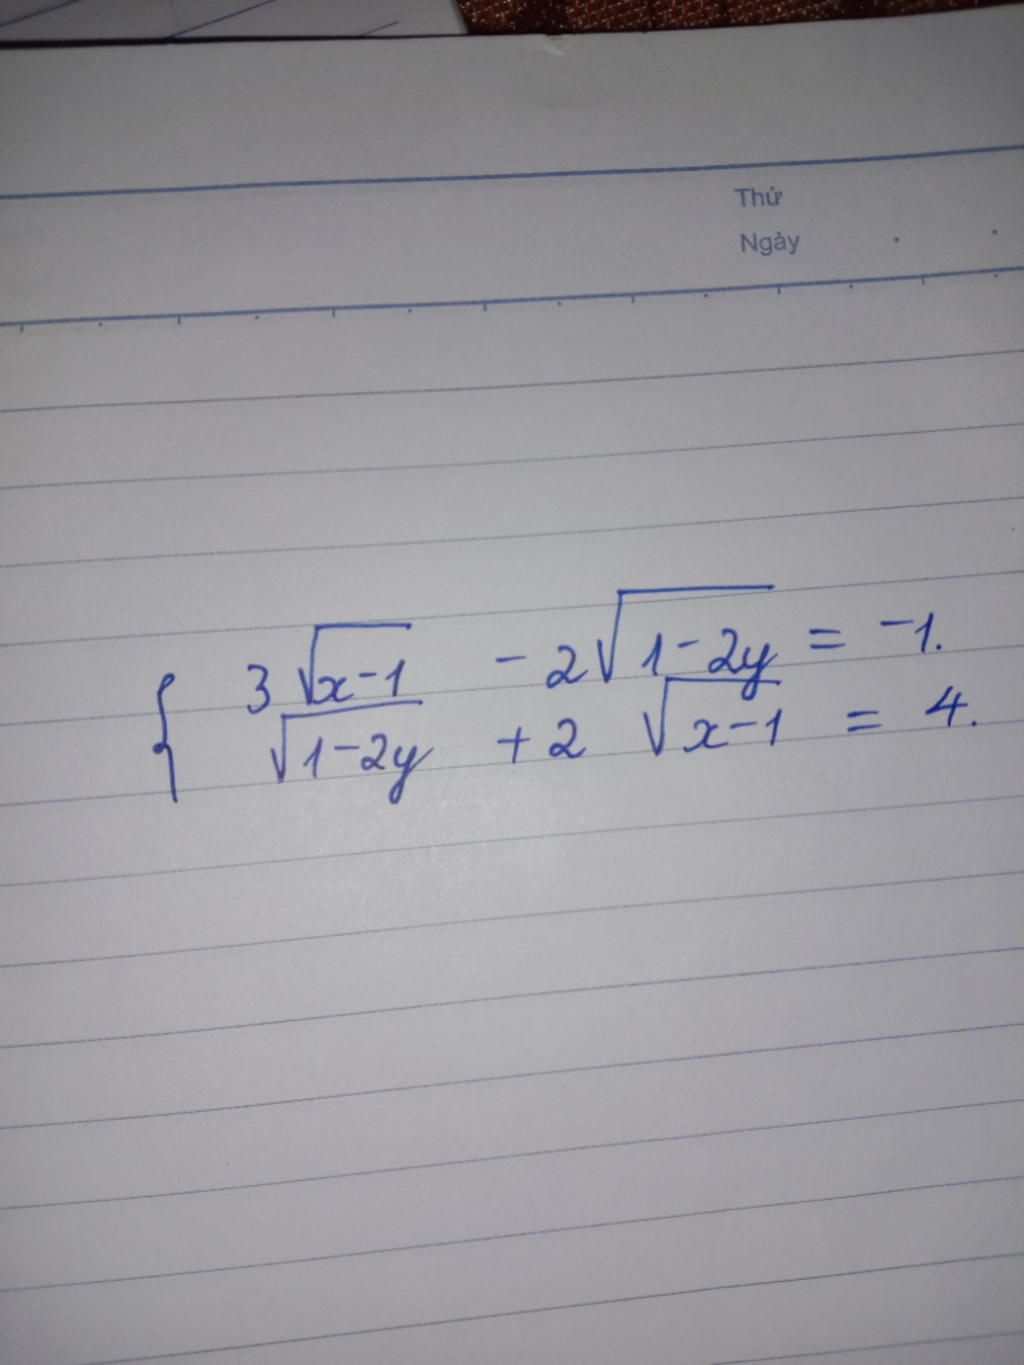 Thứ
Ngày
3√(x-1) - 2√(1-2y) = -1.
{ √(1-2y) + 2 √(x-1) = 4.